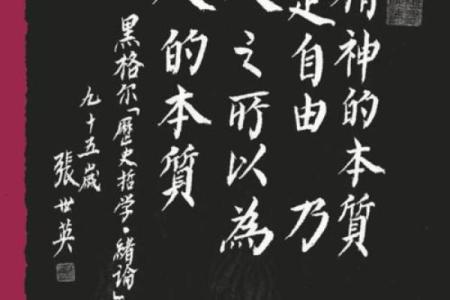 精神的本質
是自由乃
人之所以為
人的本質
黑格尔「歷史哲学·緒論」
九十五歲
張世英